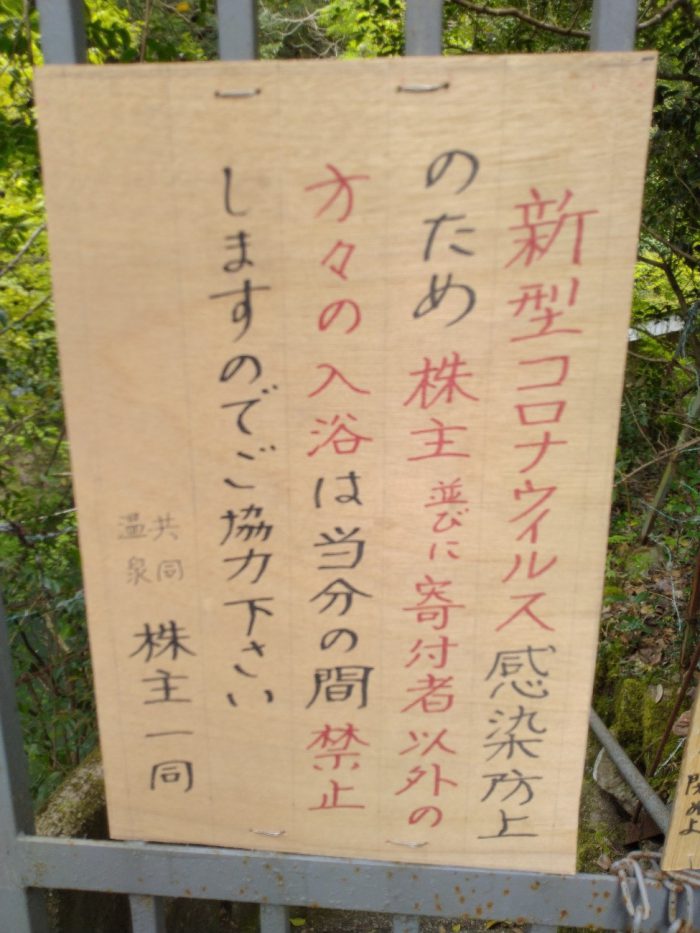 新型コロナウイルス感染防上
のため株主並びに寄付者以外の
方々の入浴は当分の間禁止
しますのでご協力下さい
共同
温泉
株主一同